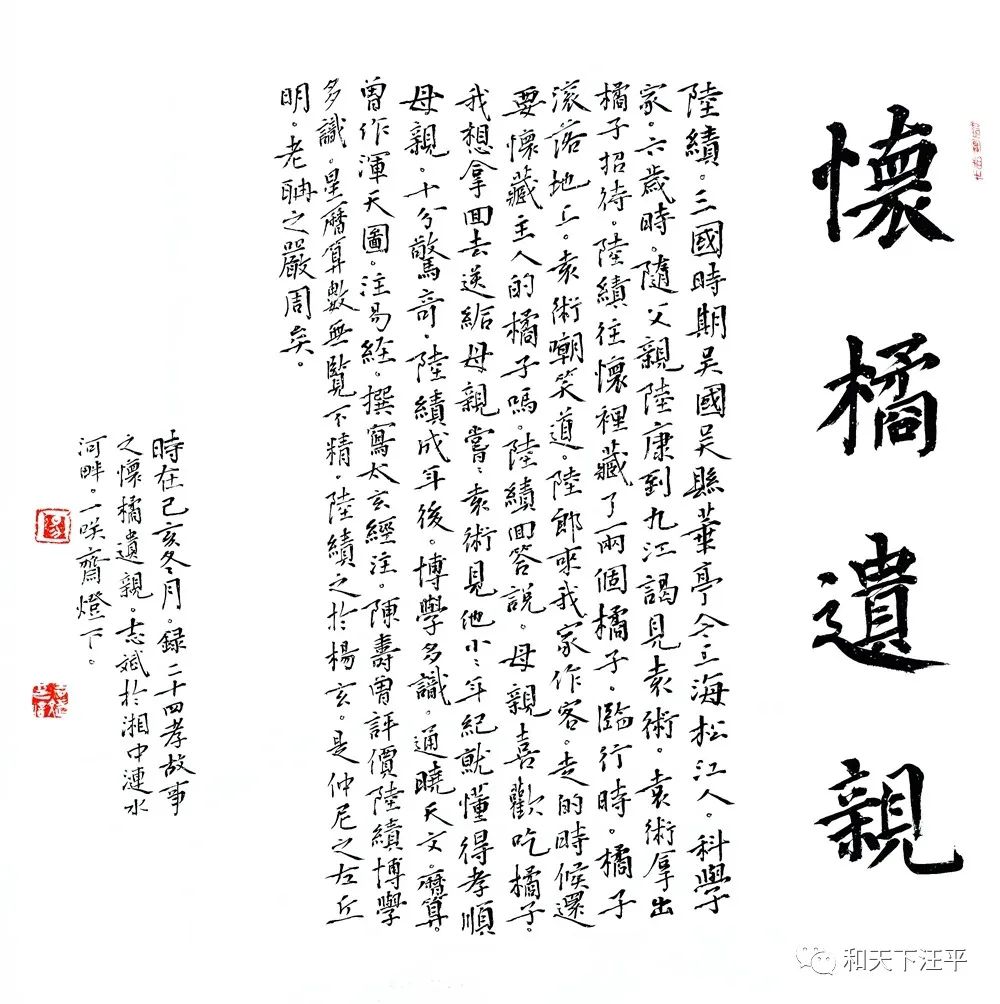 懷橘遺親
陸績。三國時期吳國吳縣華亭今上海松江人。科學
家。六歲時。隨父親陸康到九江謁見袁術。袁術拿出
橘子招待。陸績往懷裡藏了兩個橘子。臨行時。橘子
滚落地上。袁術嘲笑道。陸郎來我家作客。走的時候還
要懷藏主人的橘子嗎。陸績回答說。母親喜歡吃橘子。
我想拿回去送給母親嘗。袁術見他小小年紀就懂得孝順
母親。十分驚奇。陸績成年後。博學多識。通曉天文。曆算。
曾作渾天圖。注易經。撰寫太玄經注。陳壽曾評價陸績博學
多識。星曆算數無覽不精。陸績之於楊玄。是仲尼之左丘
明。老聃之嚴周矣。
時在己亥冬月。録二十四孝故事
之懷橘遺親。志斌於湘中漣水
河畔。一咲齋燈下。
和天下汪平